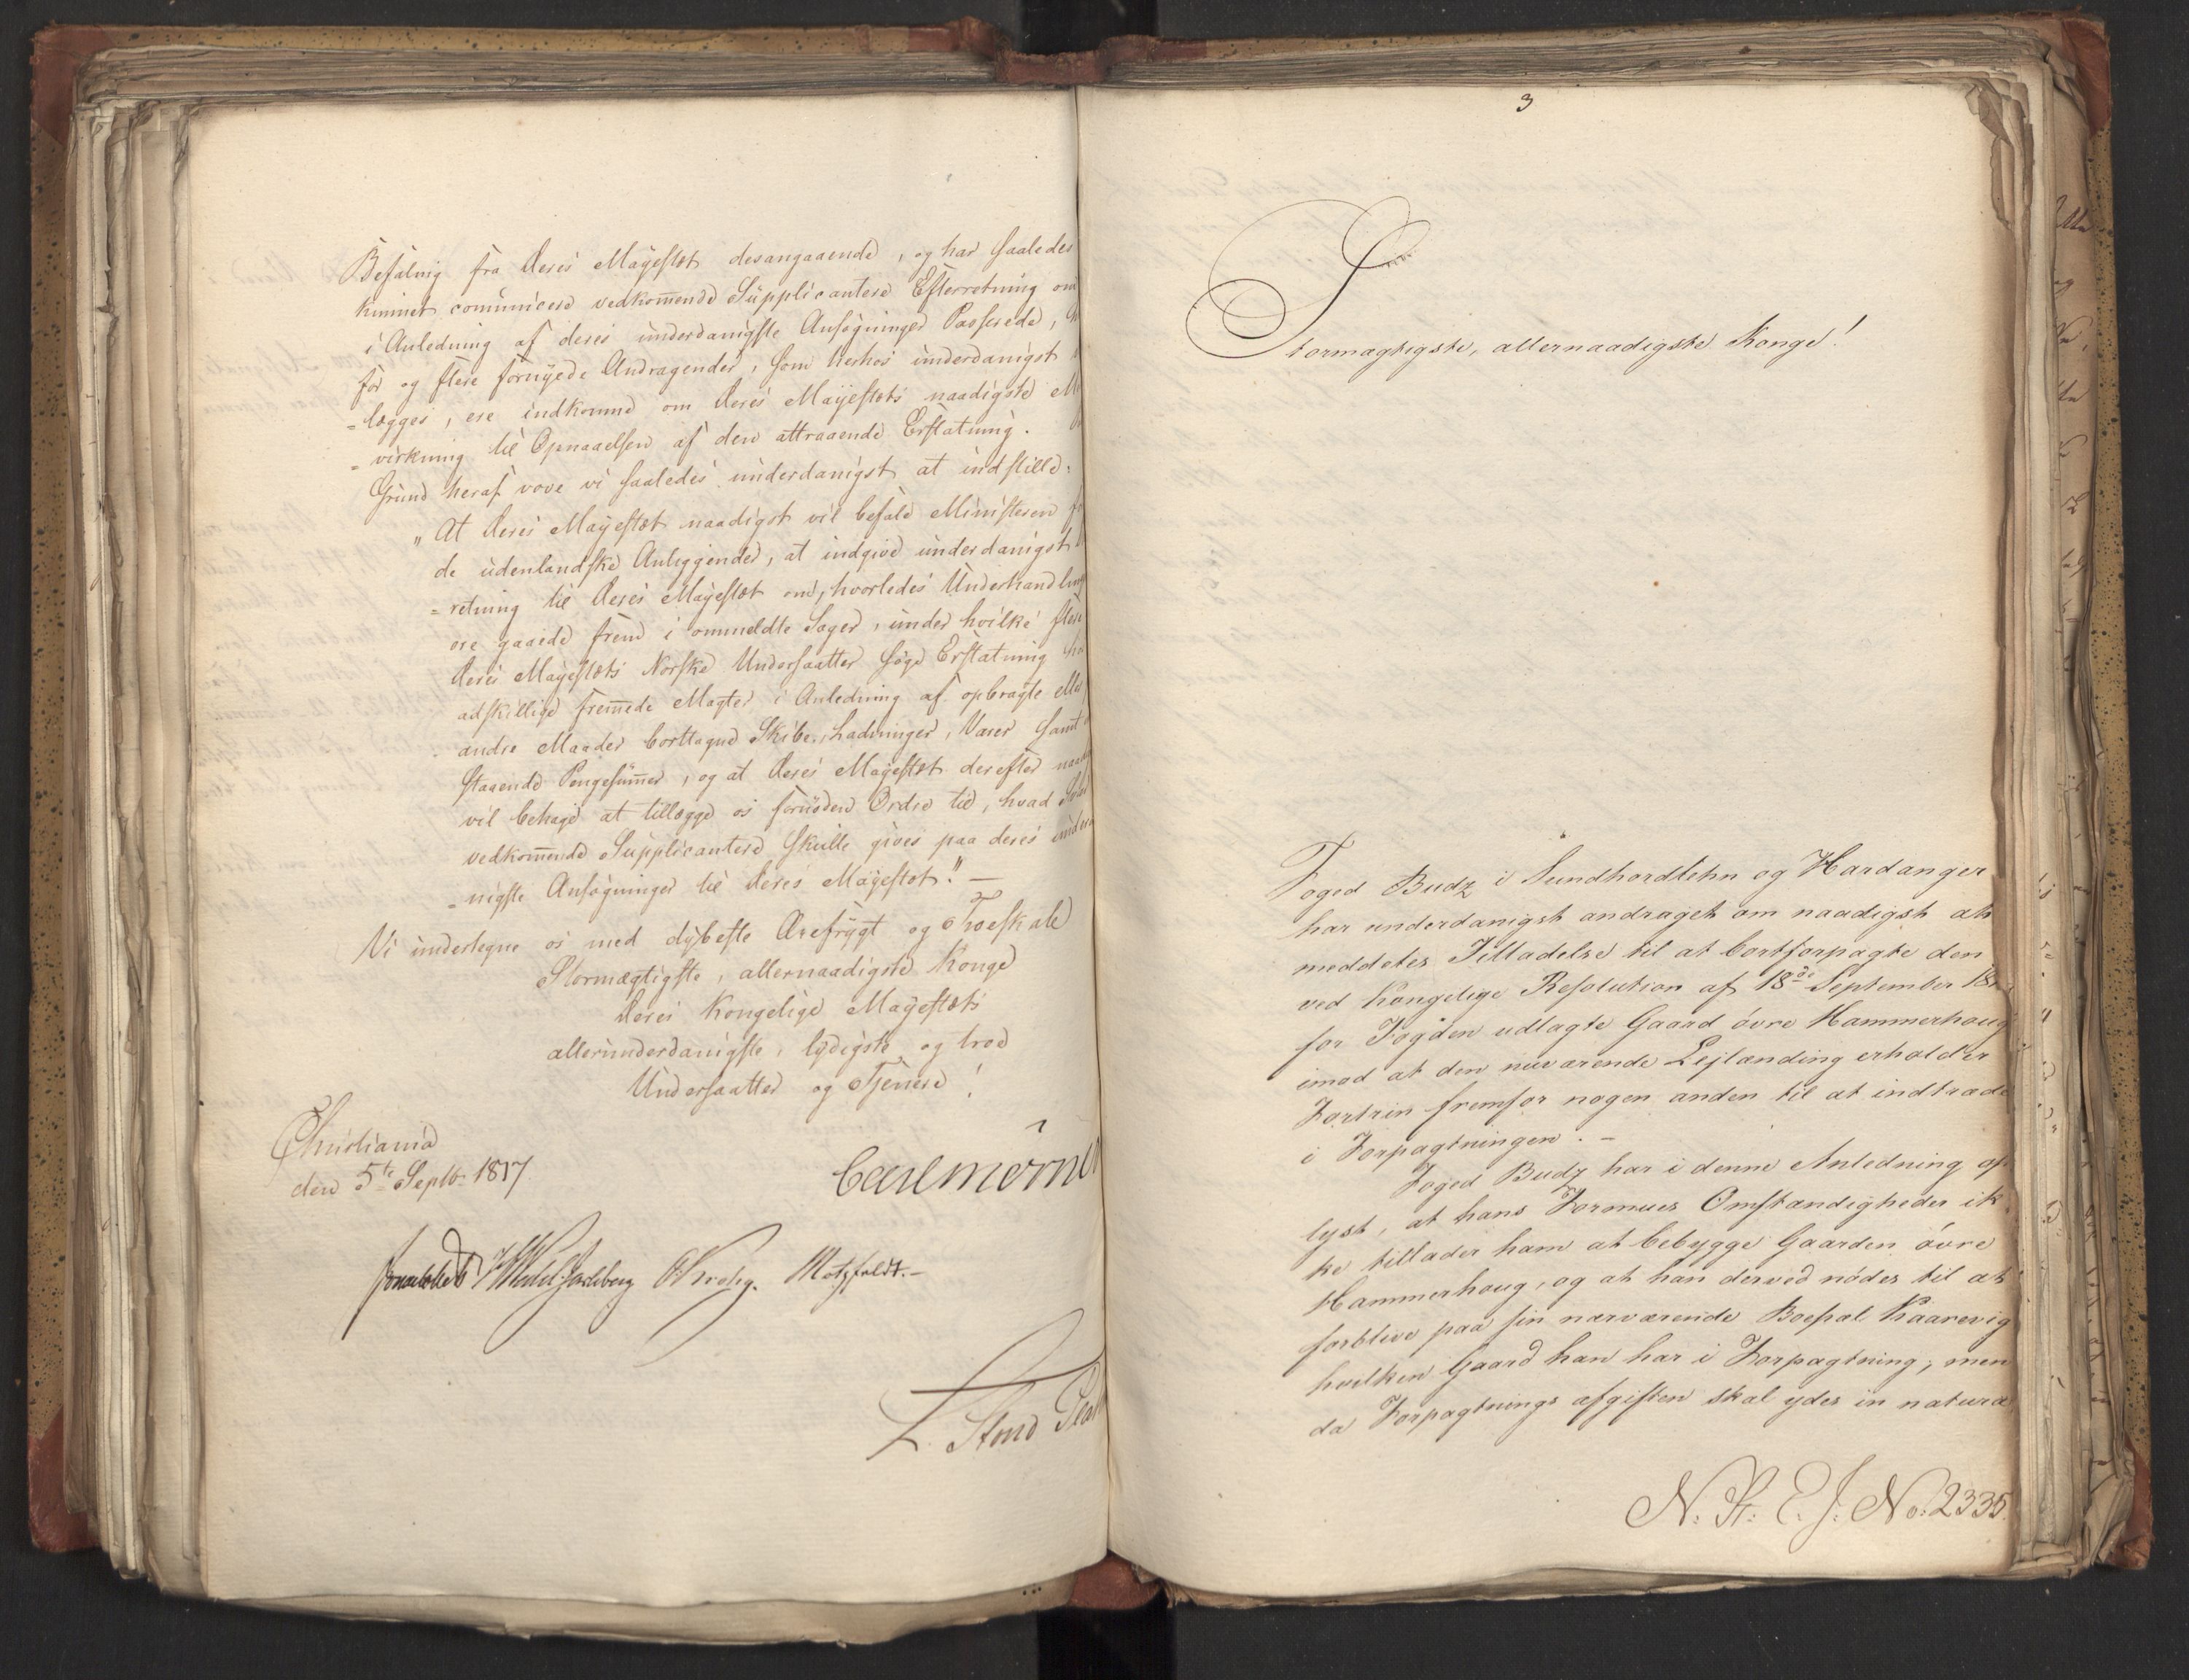 Befaling fra Deres Mayestæt desangaaende, og har saaledes
kunnet com̄unicere vedkom̄ende Supplicantere Efterretning om
i Anledning af deres underdanigste Ansøgninger Passerede,
før og flere fornyede Andragender, som herhos underdanigst
=lægges, ere indkomne om Deres Mayestæts naadigste
=virkning til Opnaaelsen af den attraaende Erstatning.
Grund heraf vove vi saaledes underdanigst at indstille:
"At Deres Mayestæt naadigst vil befale Ministeren
de udenlandske Anliggender, at indgive underdanigst
=retning til Deres Mayestæt om, hvorledes Underhandling
ere gaaede frem i ommeldte Sager, under hvilke flere
Deres Mayestæts Norske Undersaatter søge Erstatning
adskillige frem̄ede Magter i Anledning af opbragte eller
andre Maader borttagne Skibe, Ladninger, Varer samt
staaende Pengesum̄er, og at Deres Mayestæt derefter
vil behage at tillægge os fornöden Ordre til, hvad
vedkom̄ende Supplicantere skulle gives paa deres under
=nigste Ansøgninger til Deres Mayestæt." —
Vi undertegne os med dybeste Ærefrygt og Troeskab
Stormægtigste, allernaadigste Konge
Deres Kongelige Mayestæts
allerunderdanigste, lydigste og troe
Undersaatter og Tjenere!
Christiania
den 5te Septbr 1817.
Carl Mörner
Sommerhielm HWedelJarlsberg CKrohg. Motzfeldt.—
L. Stoud Plat
3
Stormægtigste, allernaadigste Konge!
Foged Budz i Sundhordlehn og Hardanger
har underdanigst andraget om naadigst at
meddeles Tilladelse til at bortforpagte den
ved Kongelige Resolution af 18de September
for Fogden udlagte Gaard övre Hammerhoug
imod at den nuværende Lejlænding erholder
Fortrin fremfor nogen anden til at indtræde
i Forpagtningen. —
Foged Budz har i denne Anledning op
lyst, at hans Formues Omstændigheder ik
ke tillader ham at bebygge Gaarden övre
Hammerhoug, og at han derved nödes til at
forblive paa sin nærværende Boepæl Kaarevig
hvilken Gaard han har i Forpagtning; men
da Forpagtnings afgiften skal ydes in natura
N. R. E. J. No. 2335.